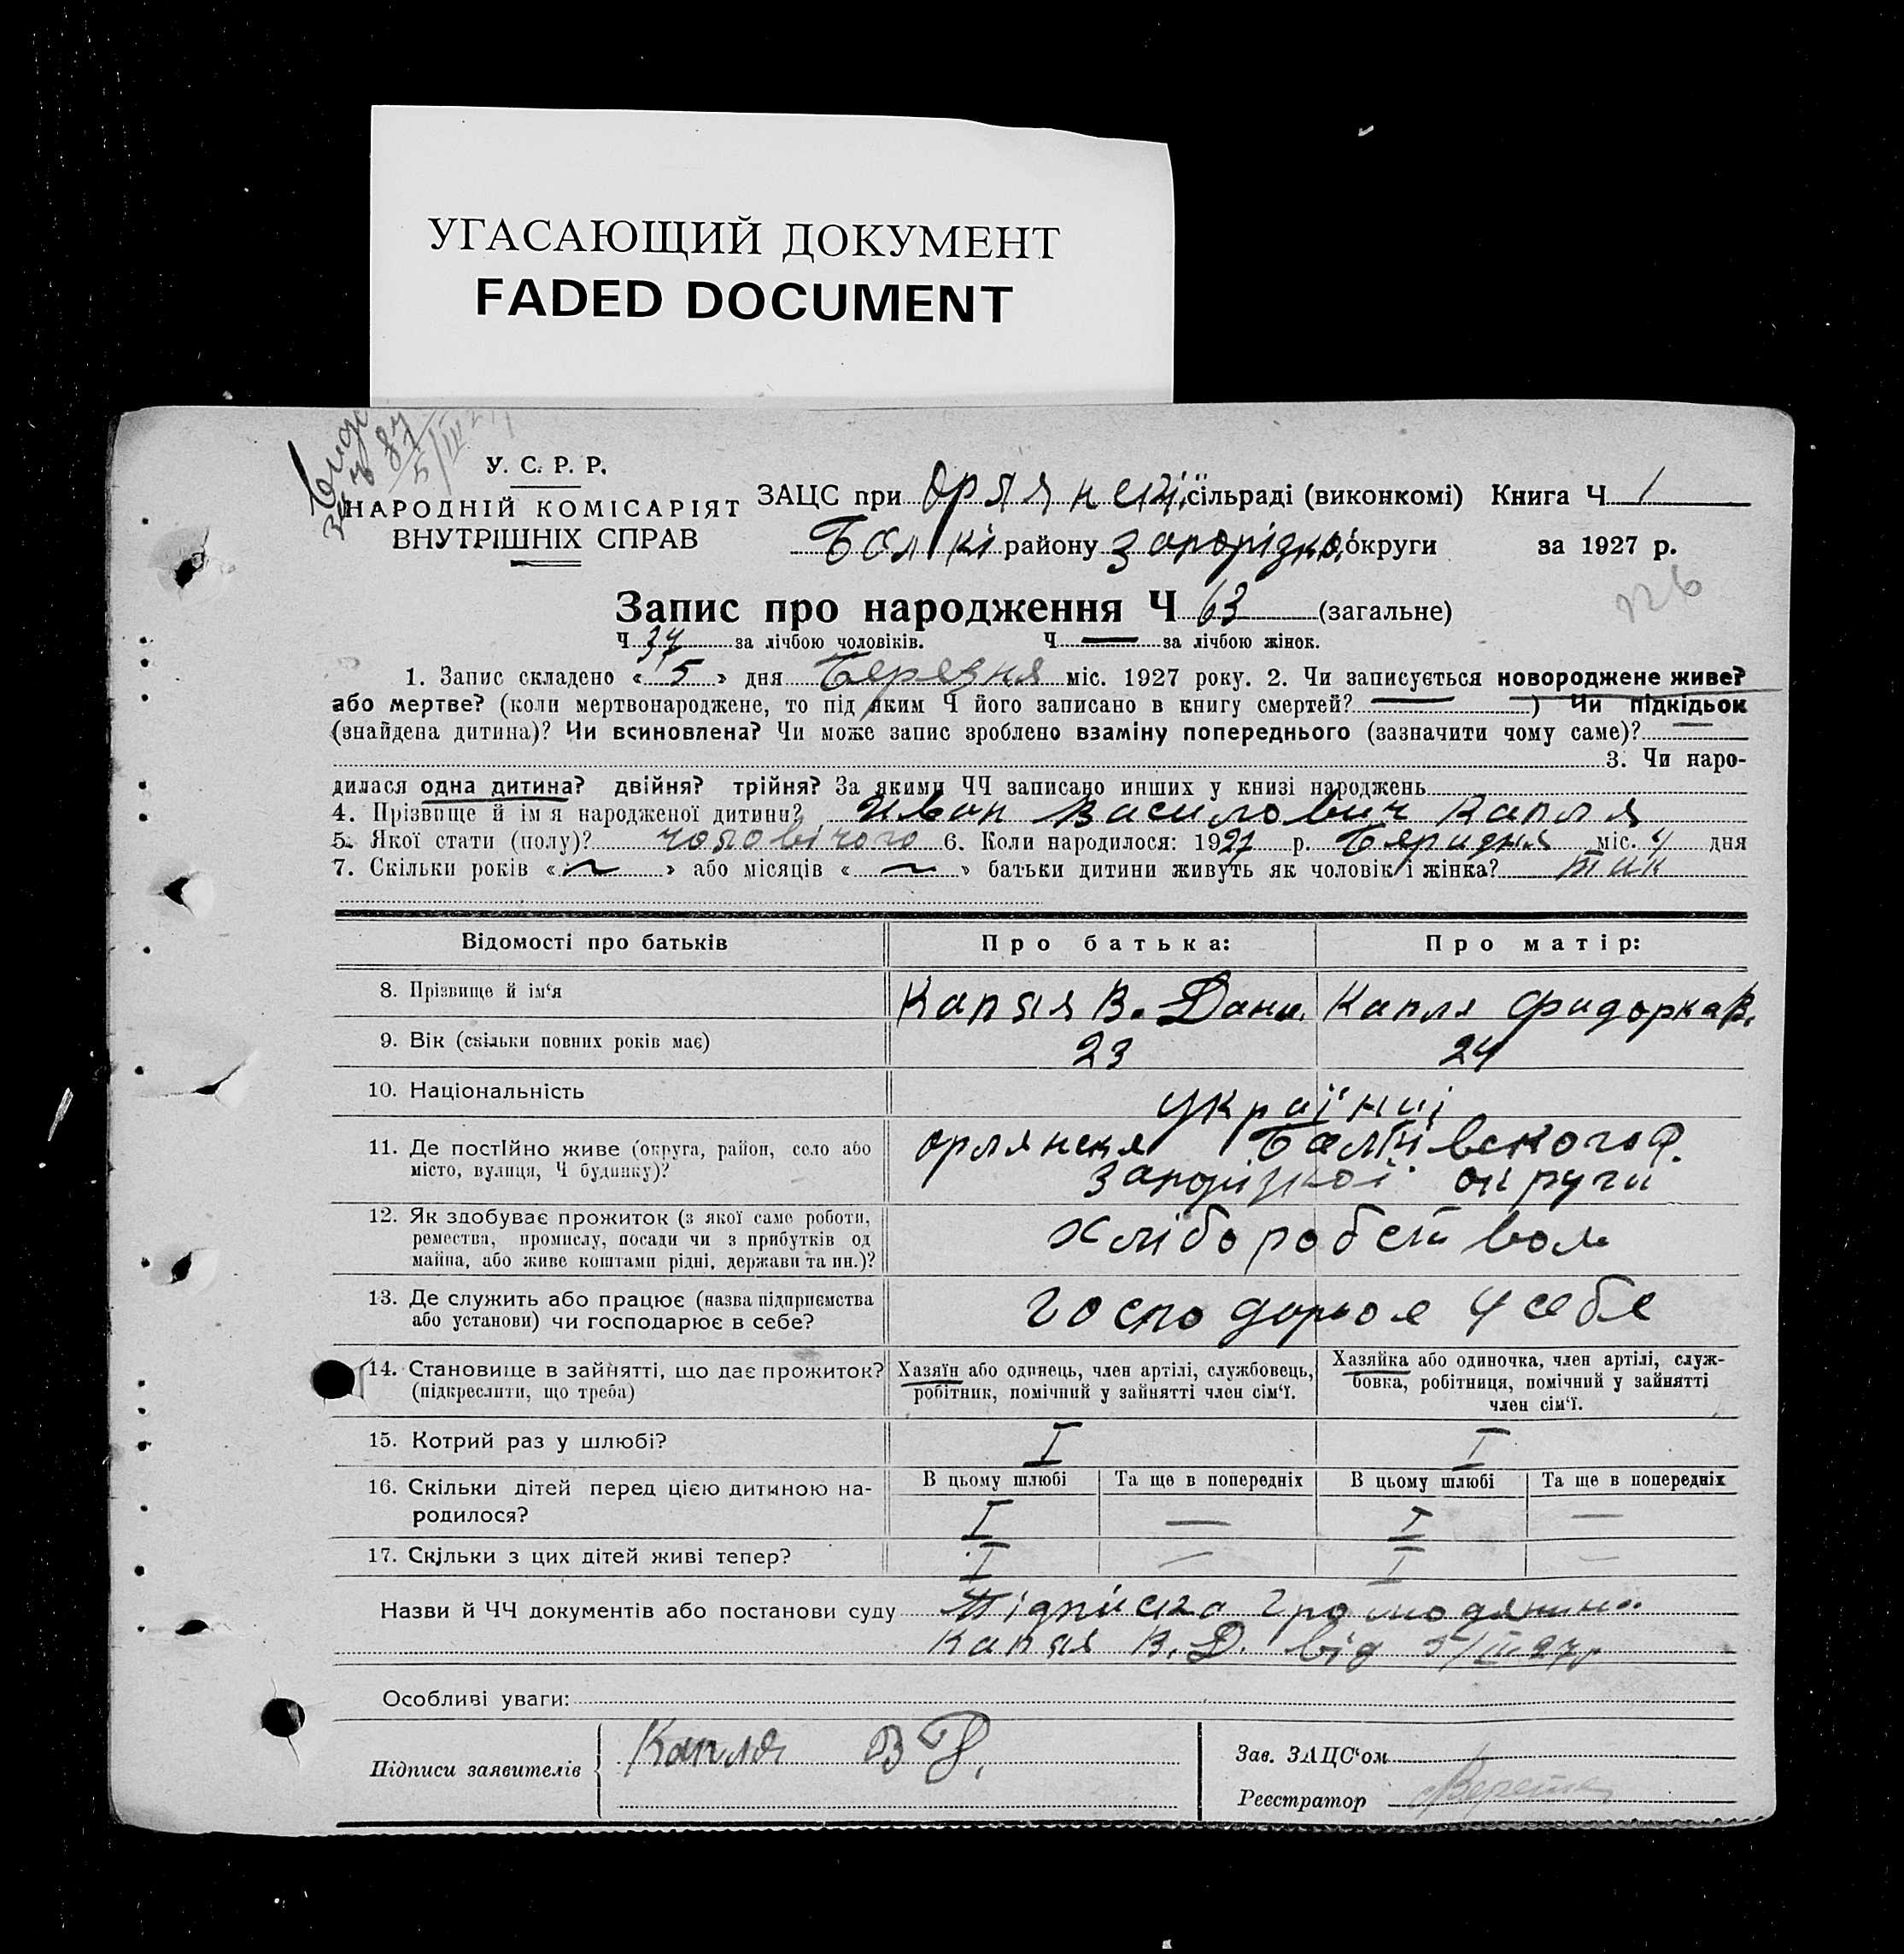 УГАСАЮЩИЙ ДОКУМЕНТ
FADED DOCUMENT
У. С. Р. Р.
НАРОДНІЙ КОМІСАРІЯТ
ВНУТРІШНІХ СПРАВ
ЗАЦС при Орлянскій сільраді (виконкомі) Книга Ч 1
району Запорізької округи за 1927 р.
Запис про народження Ч 63 (загальне)
Ч 37 за лічбою чоловіків. Ч — за лічбою жінок.
1. Запис складено « 5 » дня Березня міс. 1927 року. 2. Чи записується новороджене живе?
або мертве? (коли мертвонароджене, то під яким Ч його записано в книгу смертей? — ) Чи підкідьок
(знайдена дитина)? Чи всиновлена? Чи може запис зроблено взаміну попереднього (зазначити чому саме)? —
3. Чи наро-
дилася одна дитина? двійня? трійня? За якими ЧЧ записано инших у книзі народжень
4. Прізвище й ім я народженої дитини? Иван Василович Капля
5. Якої стати (полу)? чоловічого 6. Коли народилося: 1927 р. Беридня міс. 4 дня
7. Скільки років « ~ » або місяців « ~ » батьки дитини живуть як чоловік і жінка? так
Відомості про батьків Про батька: Про матір:
8. Прізвище й ім‘я Капля В. Дани. Капля Фидорка В.
9. Вік (скільки повних років має) 23 24
10. Національність українці
11. Де постійно живе (округа, район, село або Орлянскя Балківского Р.
місто, вулиця, Ч будинку)? Запорізкої округи
12. Як здобуває прожиток (з якої саме роботи, Хліборобством
ремества, промислу, посади чи з прибутків од
майна, або живе коштами рідні, держави та ин.)?
13. Де служить або працює (назва підприємства господарює у себе
або установи) чи господарює в себе?
14. Становище в зайнятті, що дає прожиток? Хазяїн або одинець, член артілі, службовець, Хазяйка або одиночка, член артілі, служ-
(підкреслити, що треба) робітник, помічний у зайнятті член сім‘ї. бовка, робітниця, помічний у зайнятті
член сім‘ї.
15. Котрий раз у шлюбі? I I
16. Скільки дітей перед цією дитиною на- В цьому шлюбі Та ще в попередніх В цьому шлюбі Та ще в попередніх
родилося? I — I —
17. Скільки з цих дітей живі тепер? I — I —
Назви й ЧЧ документів або постанови суду Підписка громодянина
Капля В. Д. від 5/III 27р
Особливі уваги:
Підписи заявителів Капля В Д.
Зав. ЗАЦС‘ом
Реєстратор